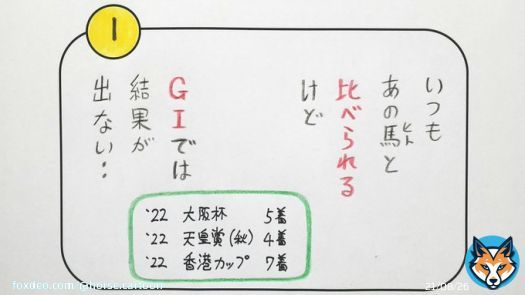 1
いつも
あの馬と
ヒト
比べられる
けど
GIでは
結果が
出ない…
'22 大阪杯 5着
'22 天皇賞(秋) 4着
'22 香港カップ 7着
foxdeo.com @horse.cartoon
21/08/26